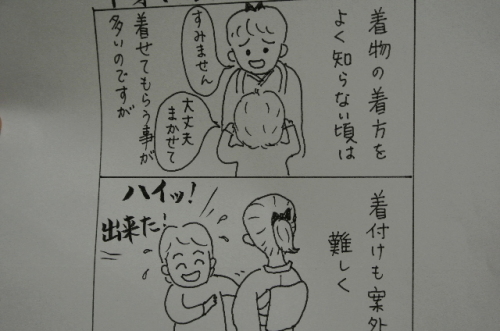 着物の着方を
よく知らない頃は
すみません
大丈夫
まかせて
着せてもらう事が
多いのですが
着付けも案外
難しく
ハイッ!
出来た!